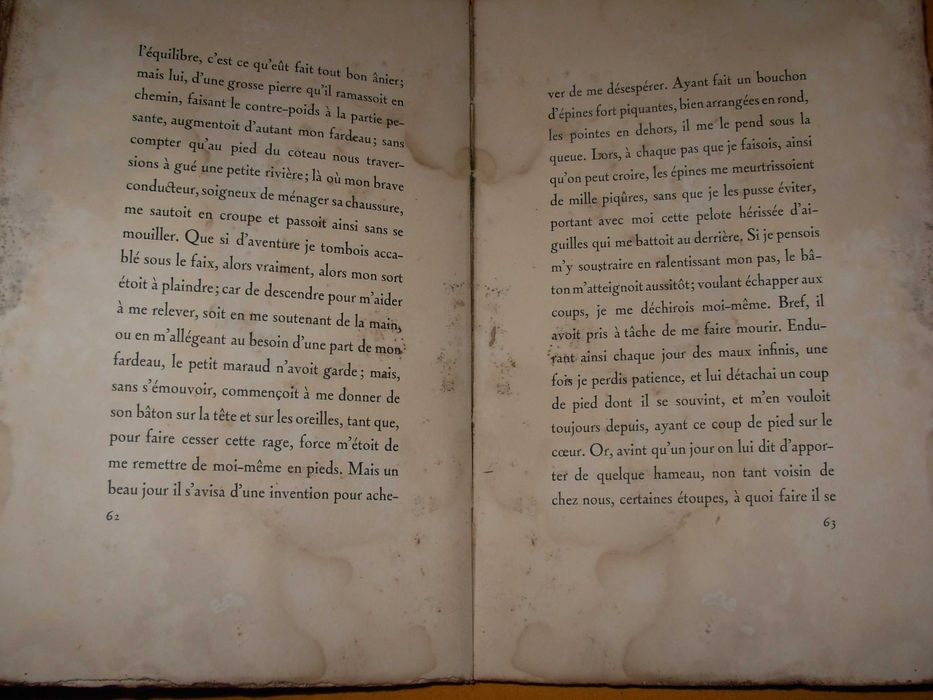 l'équilibre, c'est ce qu'eût fait tout bon ânier;
mais lui, d'une grosse pierre qu'il ramassoit en
chemin, faisant le contre-poids à la partie pe-
sante, augmentoit d'autant mon fardeau; sans
compter qu'au pied du coteau nous traver-
sions à gué une petite rivière; là où mon brave
conducteur, soigneux de ménager sa chaussure,
me sautoit en croupe et passoit ainsi sans se
mouiller. Que si d'aventure je tombois acca-
blé sous le faix, alors vraiment, alors mon sort
étoit à plaindre; car de descendre pour m'aider
à me relever, soit en me soutenant de la main,
ou en m'allégeant au besoin d'une part de mon
fardeau, le petit maraud n'avoit garde; mais,
sans s'émouvoir, commençoit à me donner de
son bâton sur la tête et sur les oreilles, tant que,
pour faire cesser cette rage, force m'étoit de
me remettre de moi-même en pieds. Mais un
beau jour il s'avisa d'une invention pour ache-
62
ver de me désespérer. Ayant fait un bouchon
d'épines fort piquantes, bien arrangées en rond,
les pointes en dehors, il me le pend sous la
queue. Lors, à chaque pas que je faisois, ainsi
qu'on peut croire, les épines me meurtrissoient
de mille piqûres, sans que je les pusse éviter,
portant avec moi cette pelote hérissée d'ai-
guilles qui me battoit au derrière. Si je pensois
m'y soustraire en ralentissant mon pas, le bâ-
ton m'atteignoit aussitôt; voulant échapper aux
coups, je me déchirois moi-même. Bref, il
avoit pris à tâche de me faire mourir. Endu-
rant ainsi chaque jour des maux infinis, une
fois je perdis patience, et lui détachai un coup
de pied dont il se souvint, et m'en vouloit
toujours depuis, ayant ce coup de pied sur le
cœur. Or, avint qu'un jour on lui dit d'appor-
ter de quelque hameau, non tant voisin de
chez nous, certaines étoupes, à quoi faire il se
63